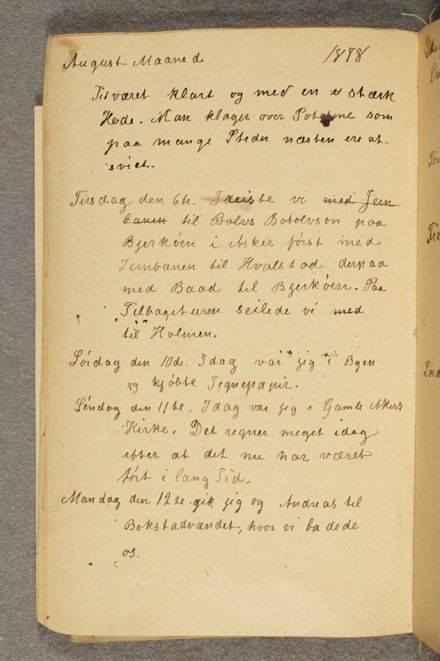 August Maaned 1878
Tisværet klart og med en stærk
Hede. Man klager over Potetene som
paa mange Steder næsten ere at-
sviet.
Tirsdag den 6te. reiste vi med Jern
banen til Bolvs Botolvson paa
Bjerköen i Asker först med
Jernbanen til Hvalstad derpaa
med Baad til Bjerköen. Paa
Tilbageturen seilede vi med
til Holmen.
Lördag den 10de. Idag var jig i Byen
og kjöbte Tegnepapir.
Söndag den 11te. Idag var jig i Gamle Akers
Kirke. Det regner meget idag
efter at det nu har været
tört i lang Tid.
Mandag den 12te gik jig og Andreas til
Bokstadvandet, hvor vi badede
os.